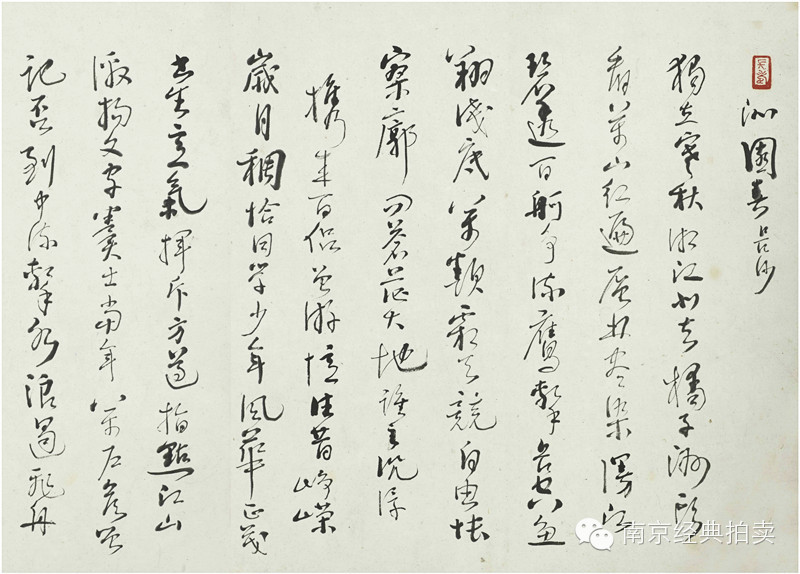 沁園春 長沙
獨立寒秋湘江北去橘子洲頭
看萬山紅遍層林盡染漫江
碧透百舸爭流鷹擊長空魚
翔淺底萬類霜天競自由悵
寥廓問蒼茫大地誰主沉浮
攜來百侶曾游憶往昔崢嶸
歲月稠恰同學少年風華正茂
書生意氣揮斥方遒指點江山
激揚文字糞土當年萬戶侯曾
記否到中流擊水浪遏飛舟
南京经典拍卖